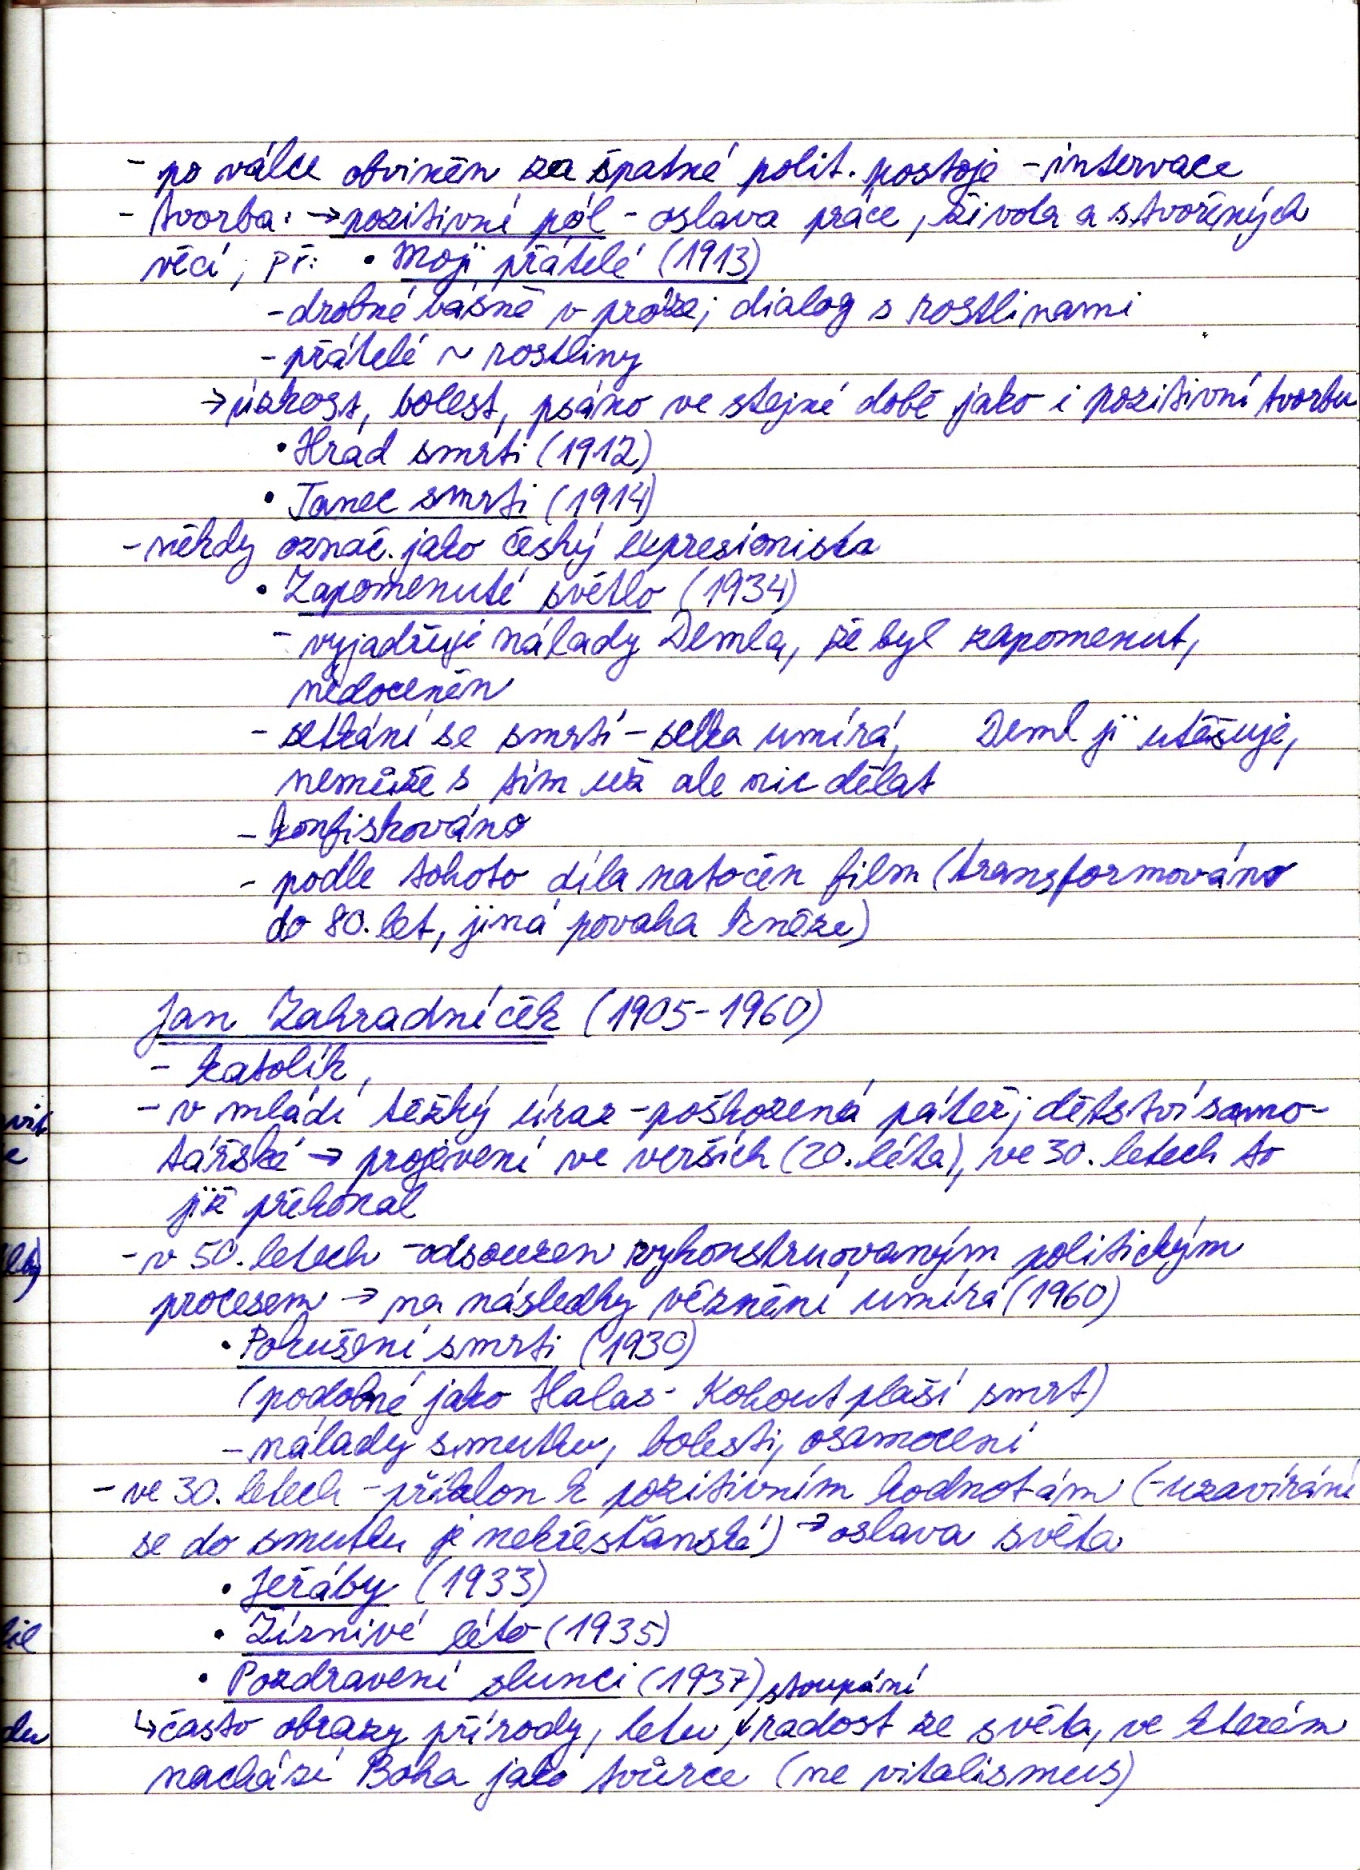 - po válce obviněn za špatné polit. postoje - intervace
- tvorba: → pozitivní pól - oslava práce, života a stvořených
věcí, př: • Moji přátelé (1913)
- drobné básně v próze; dialog s rostlinami
- přátelé ~ rostliny
→ úzkost, bolest, psáno ve stejné době jako i pozitivní tvorba
• Hrad smrti (1912)
• Tanec smrti (1914)
- někdy označ. jako český expresionista
• Zapomenuté světlo (1934)
- vyjadřuje nálady Demla, že byl zapomenut,
nedoceněn
- setkání se smrtí - selka umírá, Deml ji utěšuje,
nemůže s tím už ale nic dělat
- konfiskováno
- podle tohoto díla natočen film (transformováno
do 80. let, jiná povaha kněze)
Jan Zahradníček (1905-1960)
- katolík,
- v mládí těžký úraz - poškozená páteř; dětství samo-
tářské → projevení ve verších (20. léta), ve 30. letech to
již překonal
- v 50. letech - odsouzen vykonstruovaným politickým
procesem → na následky věznění umírá (1960)
• Pokušení smrti (1930)
(podobné jako Halas - Kohout plaší smrt)
- nálady smutku, bolesti, osamocení
- ve 30. letech - příklon k pozitivním hodnotám (- uzavírání
se do smutku je nekřesťanské) → oslava světa
• Jeřáby (1933)
• Žíznivé léto (1935)
• Pozdravení slunci (1937)
stoupání
↳ často obrazy přírody, letu, radost ze světa, ve kterém
nachází Boha jako tvůrce (ne vitalismus)